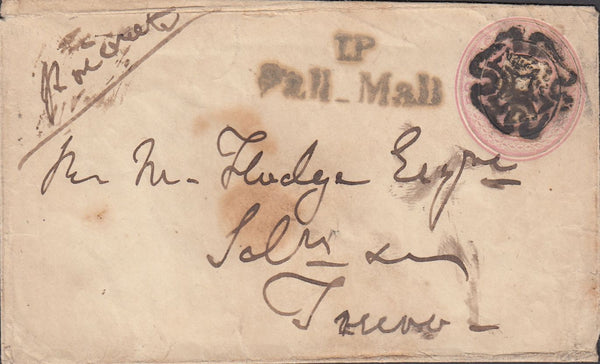 Private
T.P
Pall-Mall
Hodge Esqre
Solrs &c
Truro